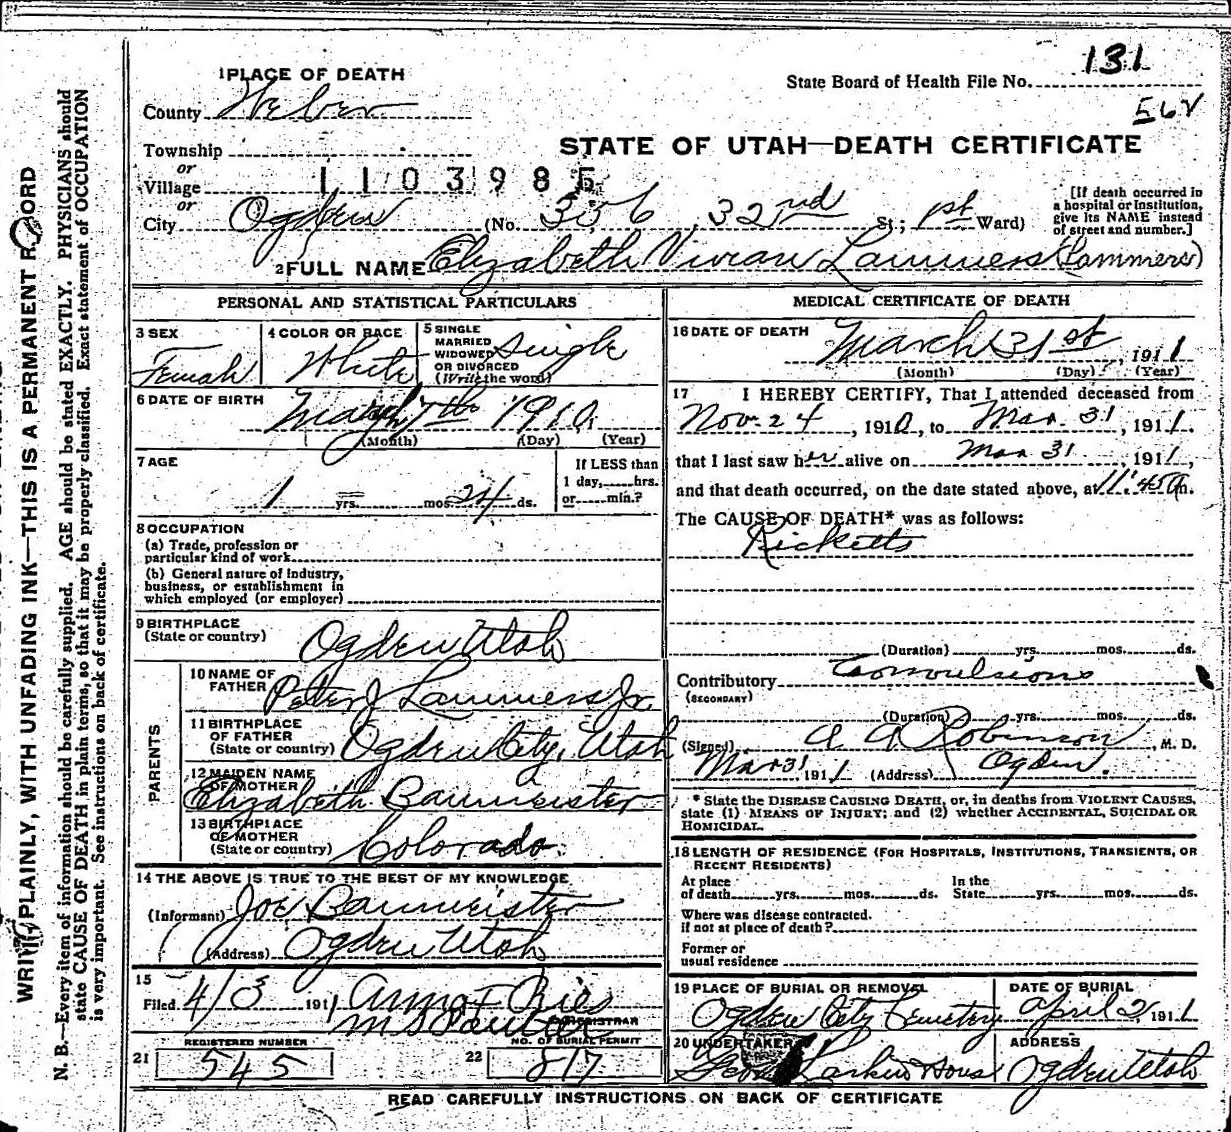 131
State Board of Health File No.
56V
STATE OF UTAH—DEATH CERTIFICATE
1 PLACE OF DEATH
County Weber
Township
or
Village
1103985
or
City Ogden (No. 356, 32nd St.; 1st Ward)
[If death occurred in
a hospital or institution,
give its NAME instead
of street and number.]
2 FULL NAME Elizabeth Vivian Lammers (Lammers)
PERSONAL AND STATISTICAL PARTICULARS
3 SEX
Female
4 COLOR OR RACE
White
5 SINGLE
MARRIED
WIDOWED
OR DIVORCED
(Write the word)
Single
6 DATE OF BIRTH
March 7th 1910
(Month) (Day) (Year)
7 AGE
1 yrs. = mos. 24 ds.
If LESS than
1 day,......hrs.
or......min.?
8 OCCUPATION
(a) Trade, profession or
particular kind of work
(b) General nature of industry,
business, or establishment in
which employed (or employer)
9 BIRTHPLACE
(State or country)
Ogden Utah
PARENTS
10 NAME OF
FATHER
Peter J Lammers Jr.
11 BIRTHPLACE
OF FATHER
(State or country)
Ogden City, Utah
12 MAIDEN NAME
OF MOTHER
Elizabeth Baumeister
13 BIRTHPLACE
OF MOTHER
(State or country)
Colorado.
14 THE ABOVE IS TRUE TO THE BEST OF MY KNOWLEDGE
(Informant) Joe Baumeister
(Address) Ogden Utah
15
Filed 4/3 1911 Anna F Ries
REGISTRAR
REGISTERED NUMBER
21 545
NO. OF BURIAL PERMIT
22 817
MEDICAL CERTIFICATE OF DEATH
16 DATE OF DEATH
March 31st, 1911
(Month) (Day) (Year)
17 I HEREBY CERTIFY, That I attended deceased from
Nov. 24, 1910, to Mar. 31, 1911.
that I last saw her alive on Mar 31 1911,
and that death occurred, on the date stated above, at 11:45 a m.
The CAUSE OF DEATH* was as follows:
Ricketts
(Duration) yrs. mos. ds.
Contributory Convulsions
(SECONDARY)
(Duration) yrs. mos. ds.
(Signed) A A Robinson, M. D.
Mar 31 1911 (Address) Ogden.
* State the DISEASE CAUSING DEATH, or, in deaths from VIOLENT CAUSES,
state (1) MEANS OF INJURY; and (2) whether ACCIDENTAL, SUICIDAL OR
HOMICIDAL.
18 LENGTH OF RESIDENCE (FOR HOSPITALS, INSTITUTIONS, TRANSIENTS, OR
RECENT RESIDENTS)
At place
of death yrs. mos. ds.
In the
State yrs. mos. ds.
Where was disease contracted.
if not at place of death?
Former or
usual residence
19 PLACE OF BURIAL OR REMOVAL
Ogden City Cemetery
DATE OF BURIAL
April 2, 1911
20 UNDERTAKER
Larkin Sons
ADDRESS
Ogden Utah
READ CAREFULLY INSTRUCTIONS ON BACK OF CERTIFICATE
WRITE PLAINLY, WITH UNFADING INK—THIS IS A PERMANENT RECORD
N. B.—Every item of information should be carefully supplied. AGE should be stated EXACTLY. PHYSICIANS should
state CAUSE OF DEATH in plain terms, so that it may be properly classified. Exact statement of OCCUPATION
is very important. See instructions on back of certificate.